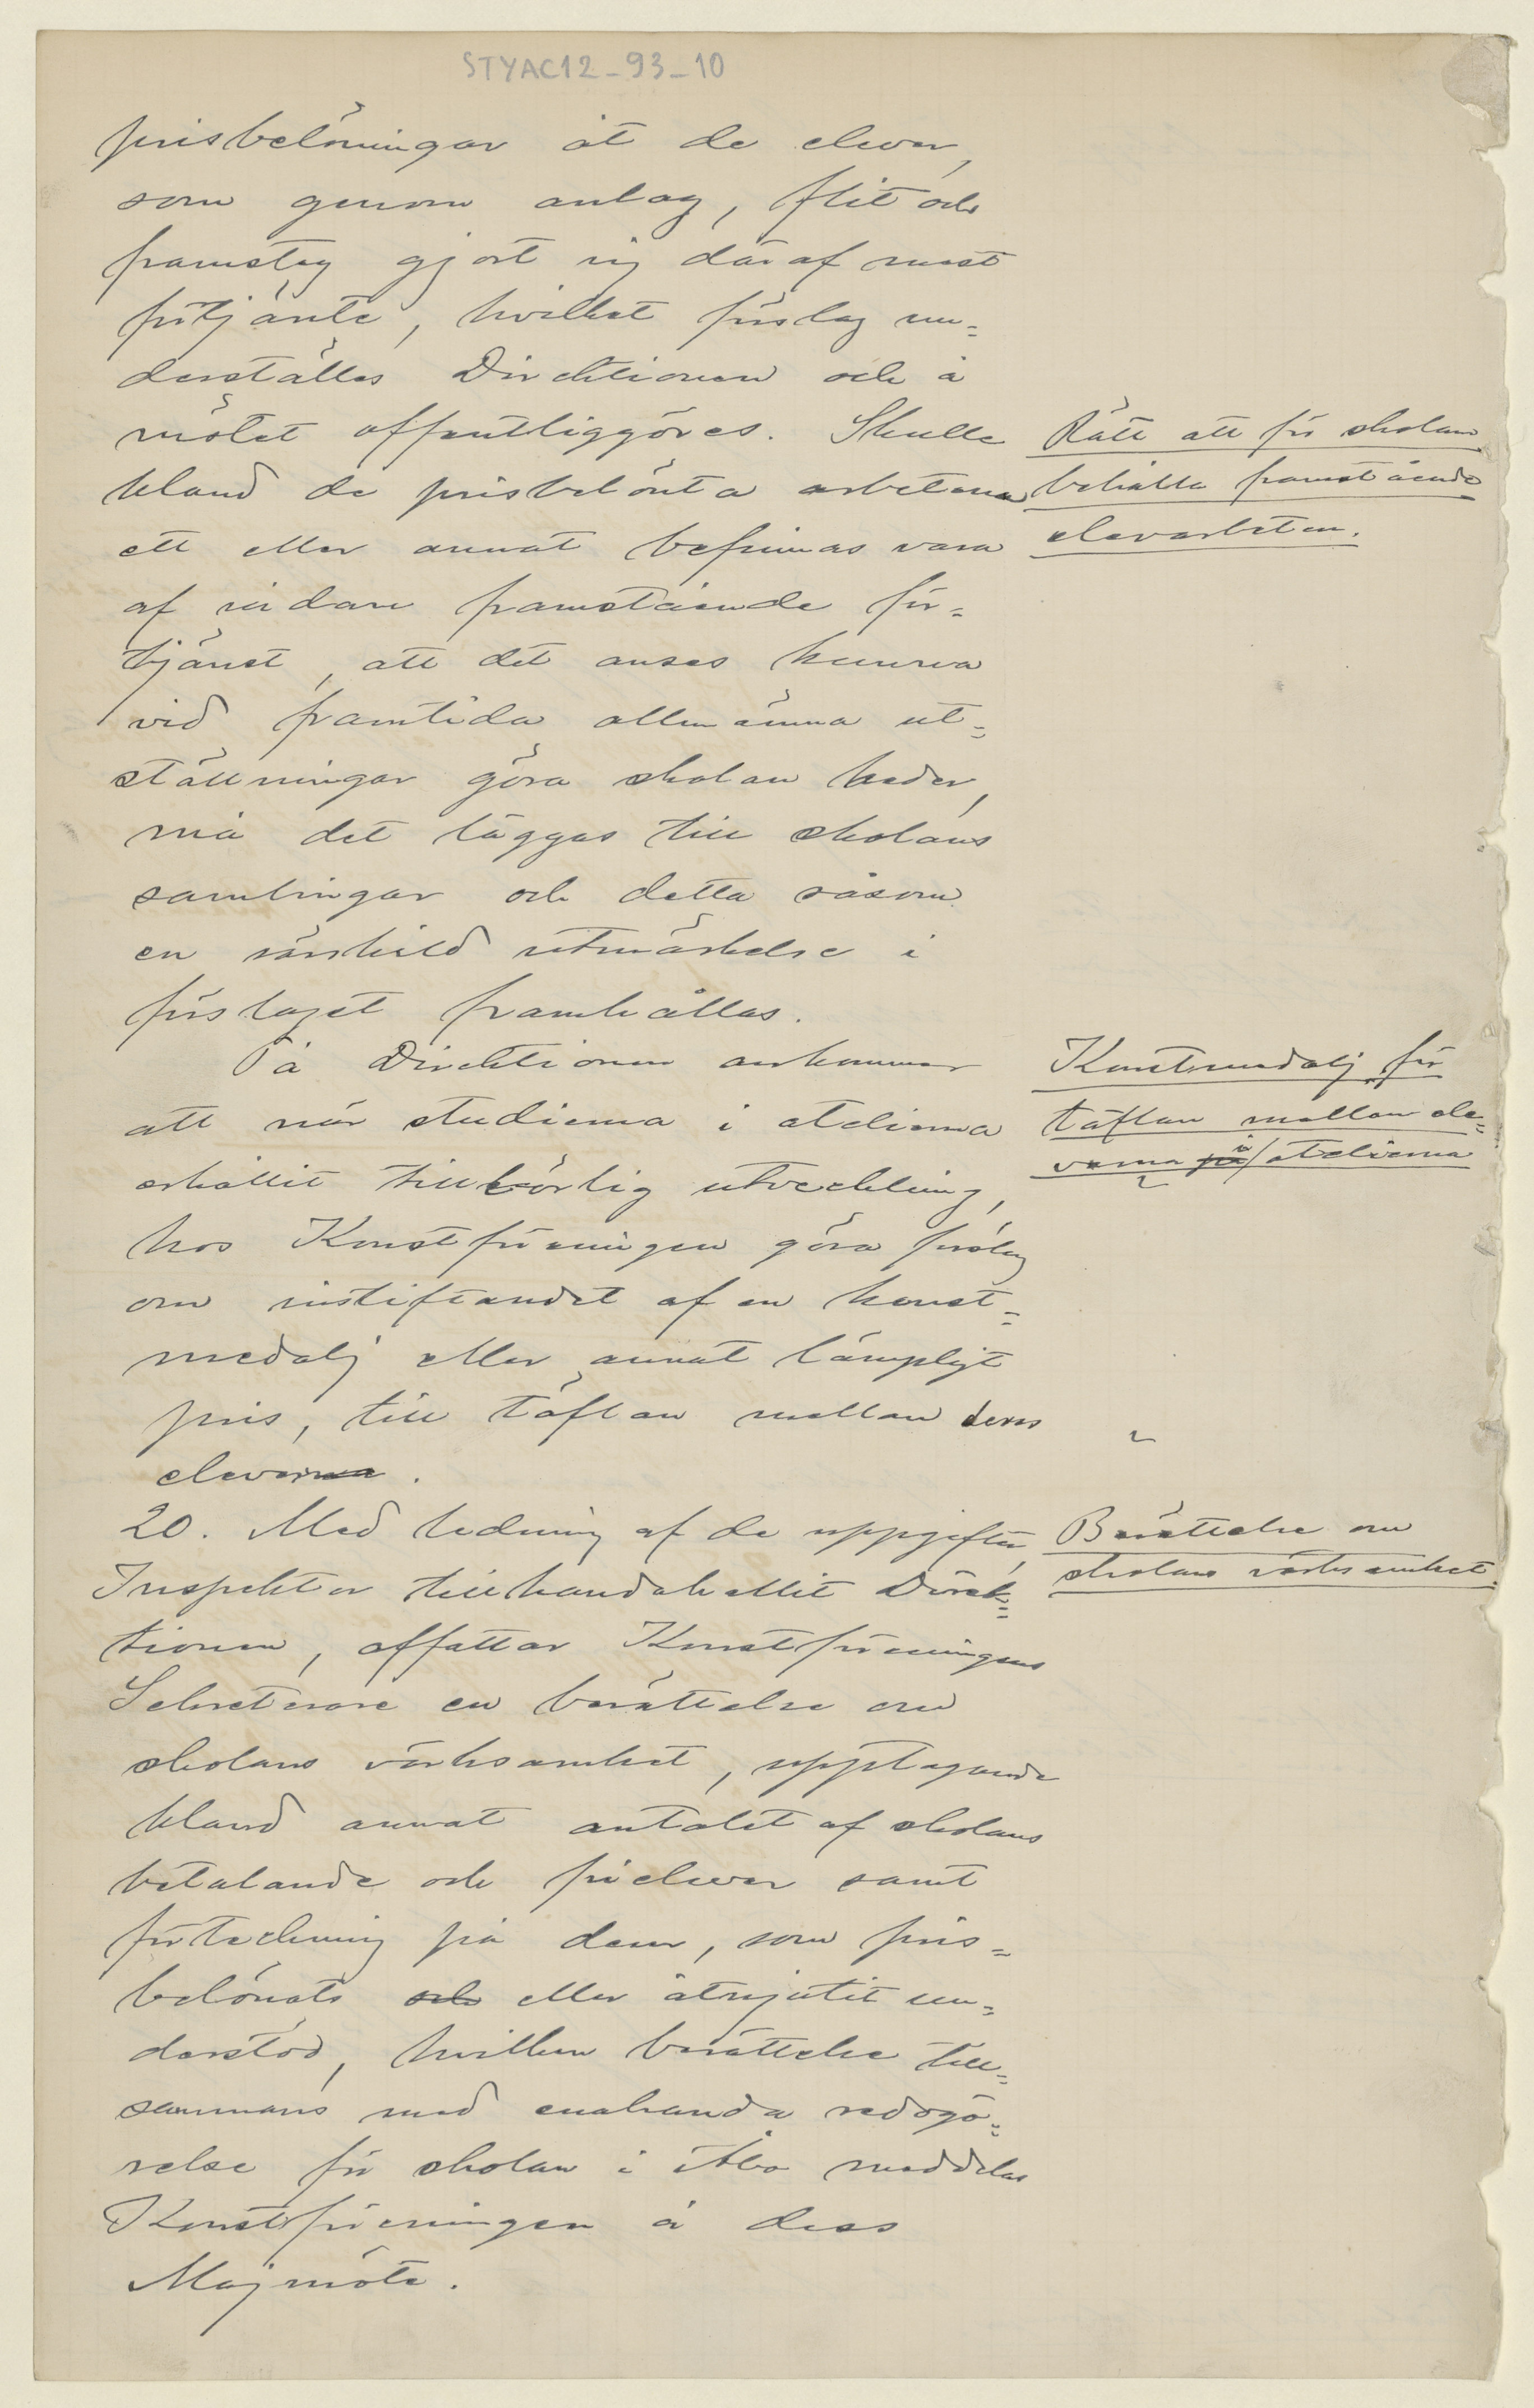 STYAC12-93-10
prisbelöningar åt de elever,
som genom anlag, flit och
framsteg gjort sig däraf mest
förtjänte, hvilket förslag un=
derställes Direktionen och å
mötet offentliggöres. Skulle
bland de prisbelönta arbetena
ett eller annat befinnas vara
af sådan framstående för=
tjänst, att det anses kunna
vid framtida allmänna ut=
ställningar göra skolan heder,
må det läggas till skolans
samlingar och detta såsom
en särskild utmärkelse i
förslaget framhållas.
Rätt att för skolan
behålla framstående
elevarbeten.
På Direktionen ankommer
att när studierna i atelierna
erhållit tillbörlig utveckling,
hos Konstföreningen göra förslag
om instiftandet af en konst=
medalj eller annat lämpligt
pris, till täflan mellan deras
eleverna.
Konstmedalj för
täflan mellan ele=
verna på i atelierna
20. Med ledning af de uppgifter,
Inspektor tillhandahållit Direk=
tionen, affattar Konstföreningens
Sekreterare en berättelse om
skolans värksamhet, upptagande
bland annat antalet af skolans
betalande och frielever samt
förteckning på dem, som pris=
belönats och eller åtnjutit un=
derstöd, hvilken berättelse till=
sammans med enahanda redogö=
relse för skolan i Åbo meddelas
Konstföreningen å dess
Majmöte.
Berättelse om
skolans värksamhet.